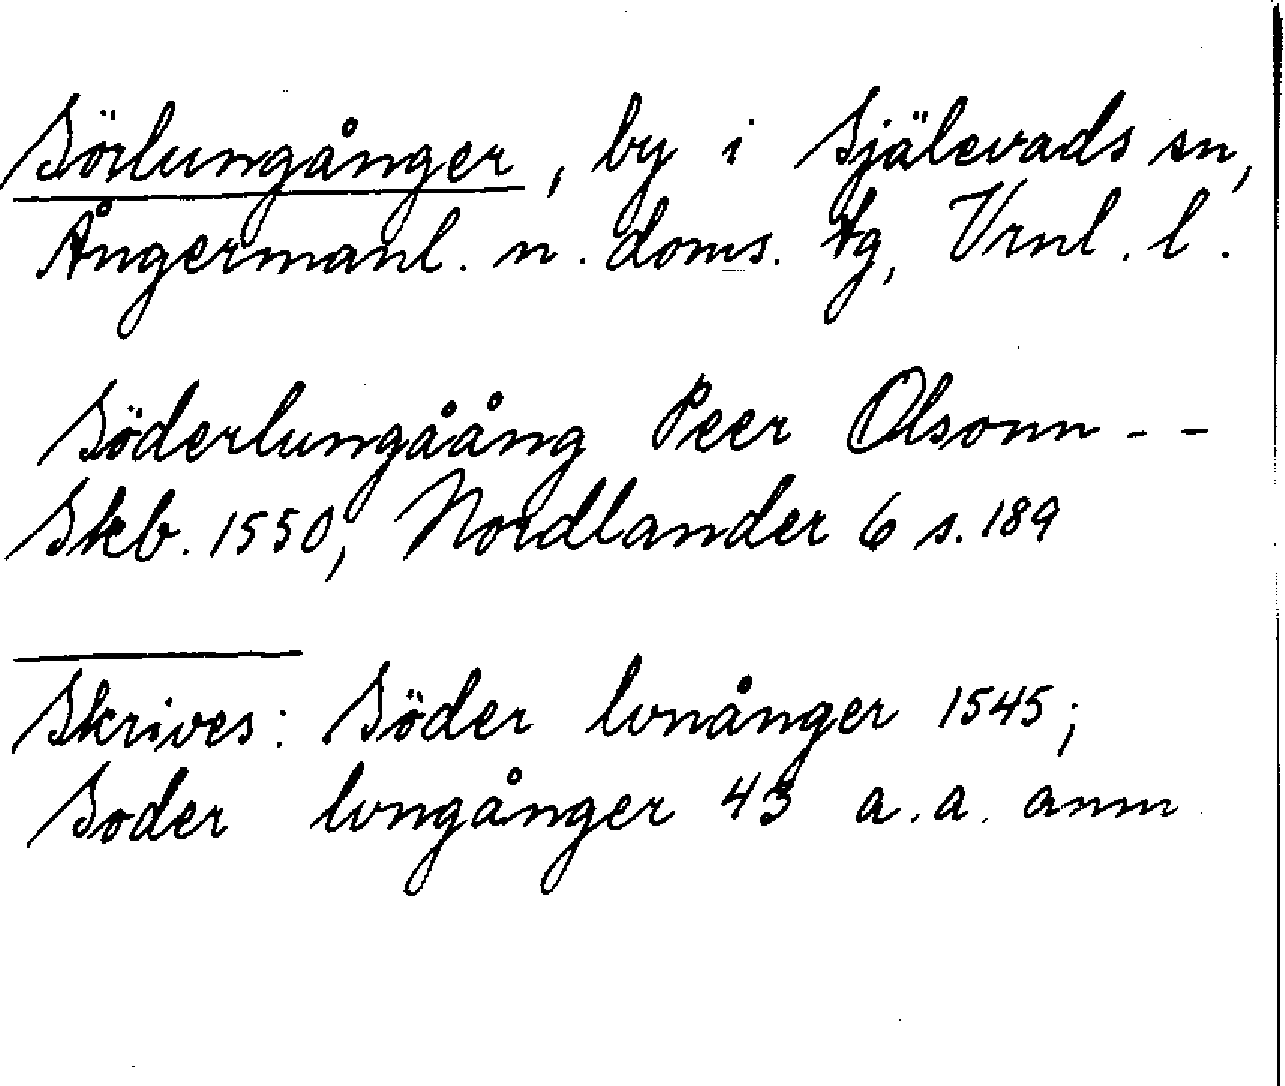 Sörlungånger, by i Själevads sn,
Ångermanl. n. doms. tg, Vrnl. l.
Söderlungåång Peer Olsonn - -
Skb. 1550, Nordlander 6 s. 189
Skrives: Söder lvnånger 1545;
Soder lvngånger 43 a. a. anm